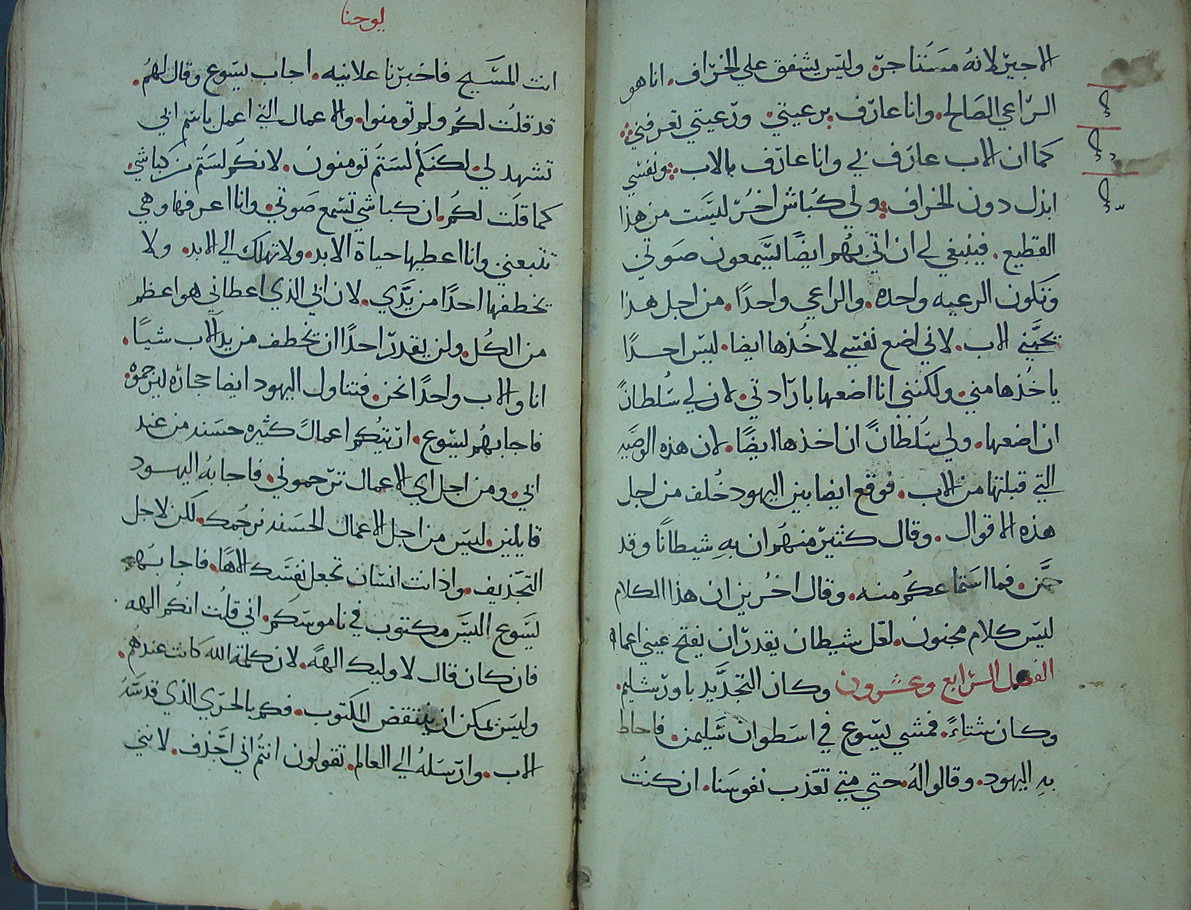 الاجير لانه مستاجر. وليس يشفق علي الخراف. انا هو
الراعي الصالح. وانا عارف برعيتي. ورعيتي تعرفني
كما ان الاب عارف لي وانا عارف بالاب. ونفسي
ابذل دون الخراف. ولي كباش اخر ليست من هذا
القطيع. فينبغي لي ان اتي بهم ايضا ليسمعون صوتي
وتكون الرعيه واحده. والراعي واحدا. من اجل هذا
يحبني الاب. لاني اضع نفسي لاخذها ايضا. ليس احدا
ياخذها مني. ولكنني انا اضعها بارادتي. لان لي سلطان
ان اضعها. ولي سلطان ان اخذها ايضا. لان هذه الوصيه
التي قبلتها من الاب. فوقع ايضا بين اليهود خلف من اجل
هذه الاقوال. وقال كثير منهم ان به شيطانا وقد
جن. فما استماعكم منه. وقال اخرين ان هذا الكلام
ليس كلام مجنون. لعل شيطان يقدر ان يفتح عيني اعما
الفصل الرابع وعشرون وكان التجديد باورشليم.
وكان شتاء. فمشي يسوع في اسطوان سليمن. فاحاط
به اليهود. وقالوا له. حتي متي تعذب نفوسنا. ان كنت
يوحنا
انت المسيح فاخبرنا علانيه. اجاب يسوع وقال لهم.
قد قلت لكم ولم تومنوا. والاعمال التي اعمل باسم ابي
تشهد لي. لكنكم لستم تومنون. لانكم لستم من كباشي.
كما قلت لكم. ان كباشي تسمع صوتي. وانا اعرفها وهي
تتبعني وانا اعطيها حياة الابد. ولا تهلك الي الابد. ولا
يخطفها احدا من يدي. لان ابي الذي اعطاني هو اعظم
من الكل. ولن يقدر احدا ان يخطف من يد الاب شيا.
انا والاب واحدا نحن. فتناول اليهود ايضا حجاره ليرجموه.
فاجابهم يسوع. اريتكم اعمال كثيره حسنه من عند
ابي. ومن اجل اي الاعمال ترجموني. فاجابه اليهود
قايلين. ليس من اجل الاعمال الحسنه نرجمك. لكن لاجل
التجذيف. واذ انت انسان تجعل نفسك الاها. فاجابهم
يسوع اليس مكتوب في ناموسكم. اني قلت انكم الهه
فان كان قال لاوليك الهه. لان كلمة الله كانت عندهم.
وليس يمكن ان ينتقض المكتوب. فكم بالحري الذي قدسه
الاب. وارسله الي العالم. تقولون انتم اني اجذف. لانني